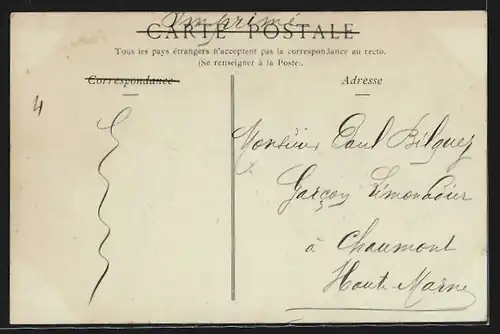 Imprimé
CARTE POSTALE
Tous les pays étrangers n'acceptent pas la correspondance au recto.
(Se renseigner à la Poste).
Correspondance
Adresse
4
Monsieur Paul Bilquez
Garçon Limonadier
à Chaumont
Haute-Marne